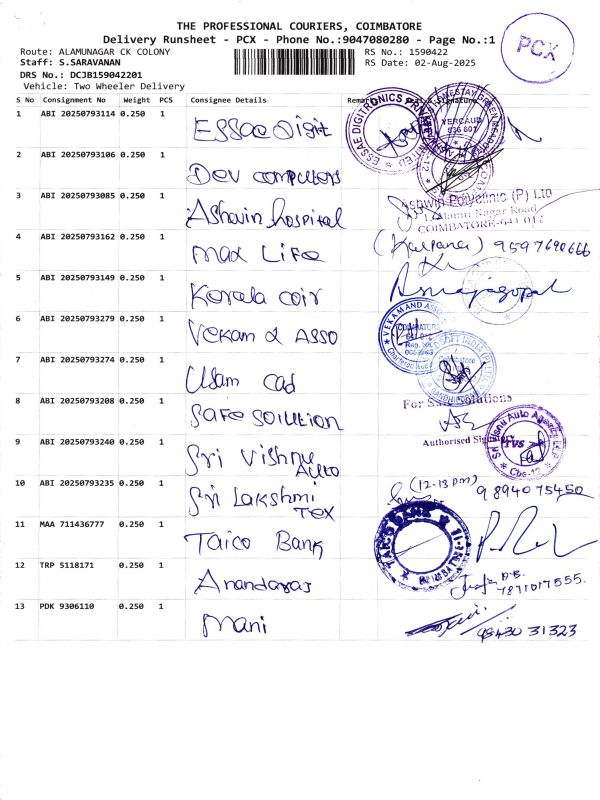 THE PROFESSIONAL COURIERS, COIMBATORE
Delivery Runsheet - PCX - Phone No.:9047080280 - Page No.:1
PCX
Route: ALAMUNAGAR CK COLONY
RS No.: 1590422
Staff: S.SARAVANAN
RS Date: 02-Aug-2025
DRS No.: DCJB159042201
Vehicle: Two Wheeler Delivery
S No Consignment No Weight PCS Consignee Details Remarks Seal & Signature
1 ABI 20250793114 0.250 1 Essae Digit
ESSAE DIGITRONICS PRIVATE LIMITED
YERCAUD
636 601
2 ABI 20250793106 0.250 1 Dev computers
3 ABI 20250793085 0.250 1 Ashwin hospital
Ashwin Polyclinic (P) Ltd
Alamu Nagar Road
COIMBATORE-641 012
4 ABI 20250793162 0.250 1 max Life
(Kalpana) 9597690666
5 ABI 20250793149 0.250 1 Kerala coir
6 ABI 20250793279 0.250 1 Vekam & Asso
VEKAM AND ASSO
COIMBATORE
7 ABI 20250793274 0.250 1 Usam cad
8 ABI 20250793208 0.250 1 Safe solution
For Safe Solutions
Authorised Signatory
9 ABI 20250793240 0.250 1 Sri Vishnu
Auto
Sri Visnu Auto Agencies
TVS
Cbe-12
10 ABI 20250793235 0.250 1 Sri Lakshmi
Tex
(12-13 pm)
9894075450
11 MAA 711436777 0.250 1 Taico Bank
12 TRP 5118171 0.250 1 Anandaras
7871017555.
13 PDK 9306110 0.250 1 Mani
98430 31323